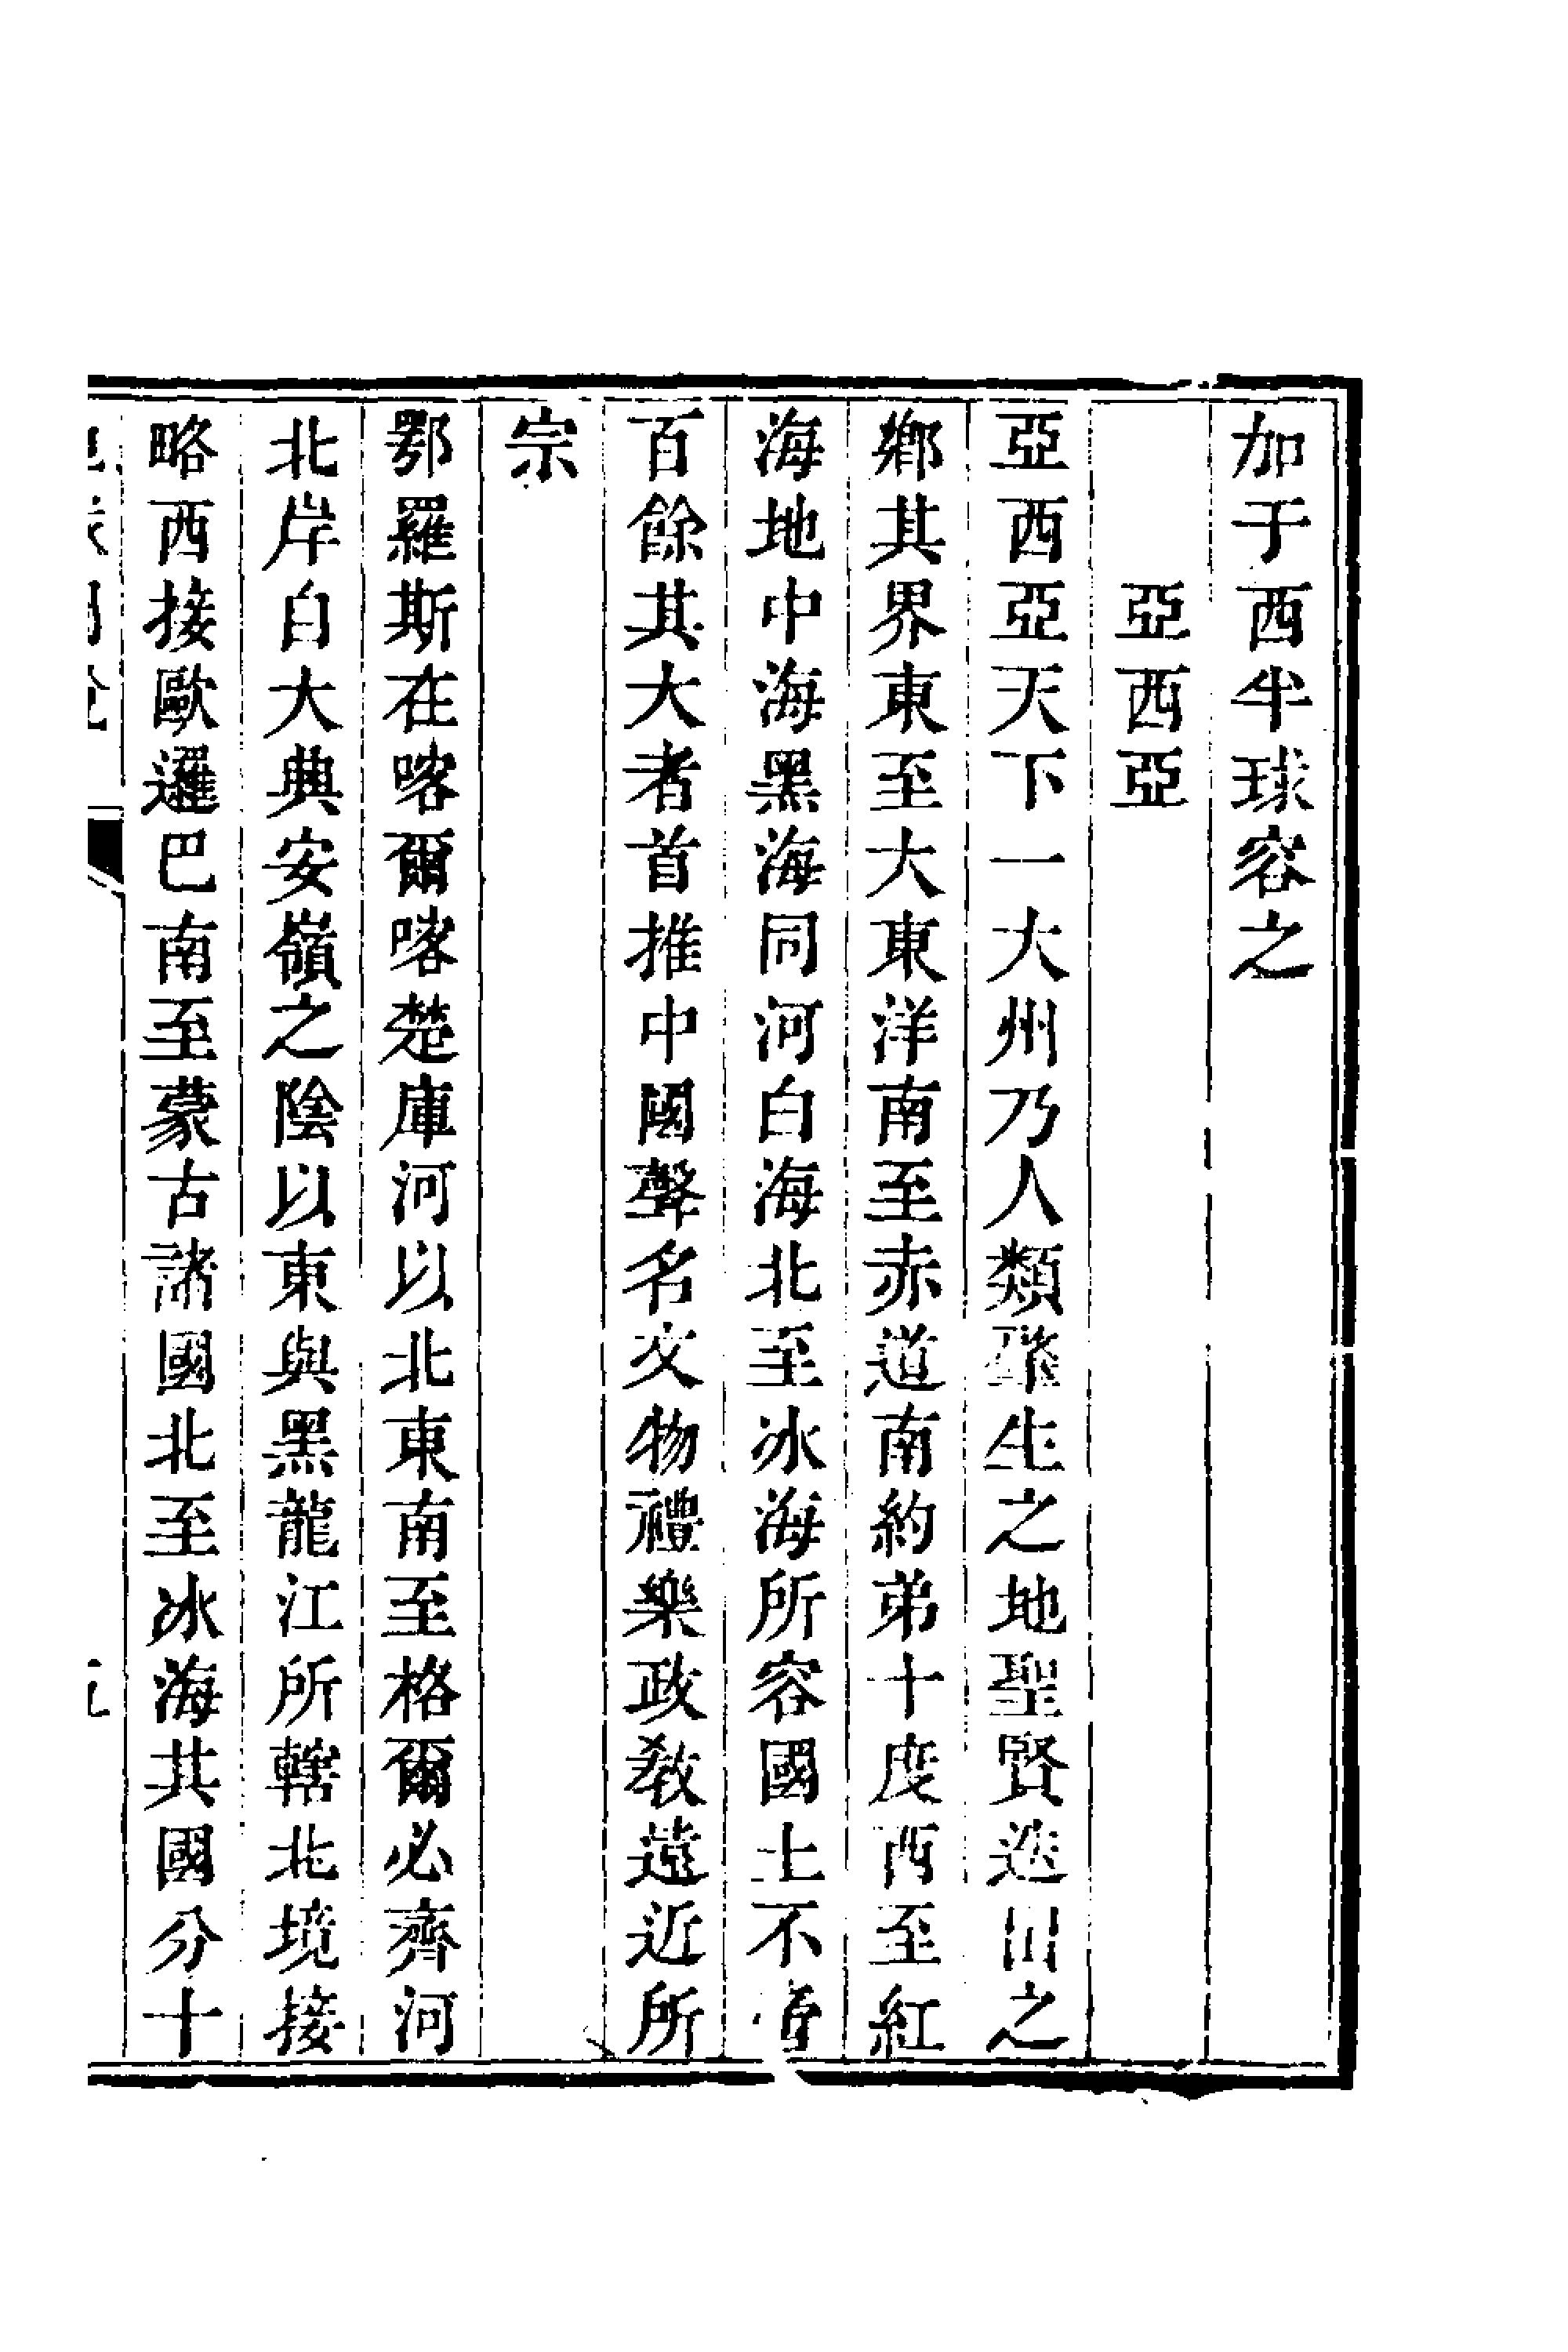 加于西半球容之
亞西亞
亞西亞天下一大州乃人類肇生之地聖賢迭出之
鄉其界東至大東洋南至赤道南約弟十度西至紅
海地中海黑海同河白海北至冰海所容國土不啻
百餘其大者首推中國聲名文物禮樂政教遠近所
宗
鄂羅斯在喀爾喀楚庫河以北東南至格爾必齊河
北岸自大典安嶺之陰以東與黑龍江所轄北境接
略西接歐邏巴南至蒙古諸國北至冰海其國分十